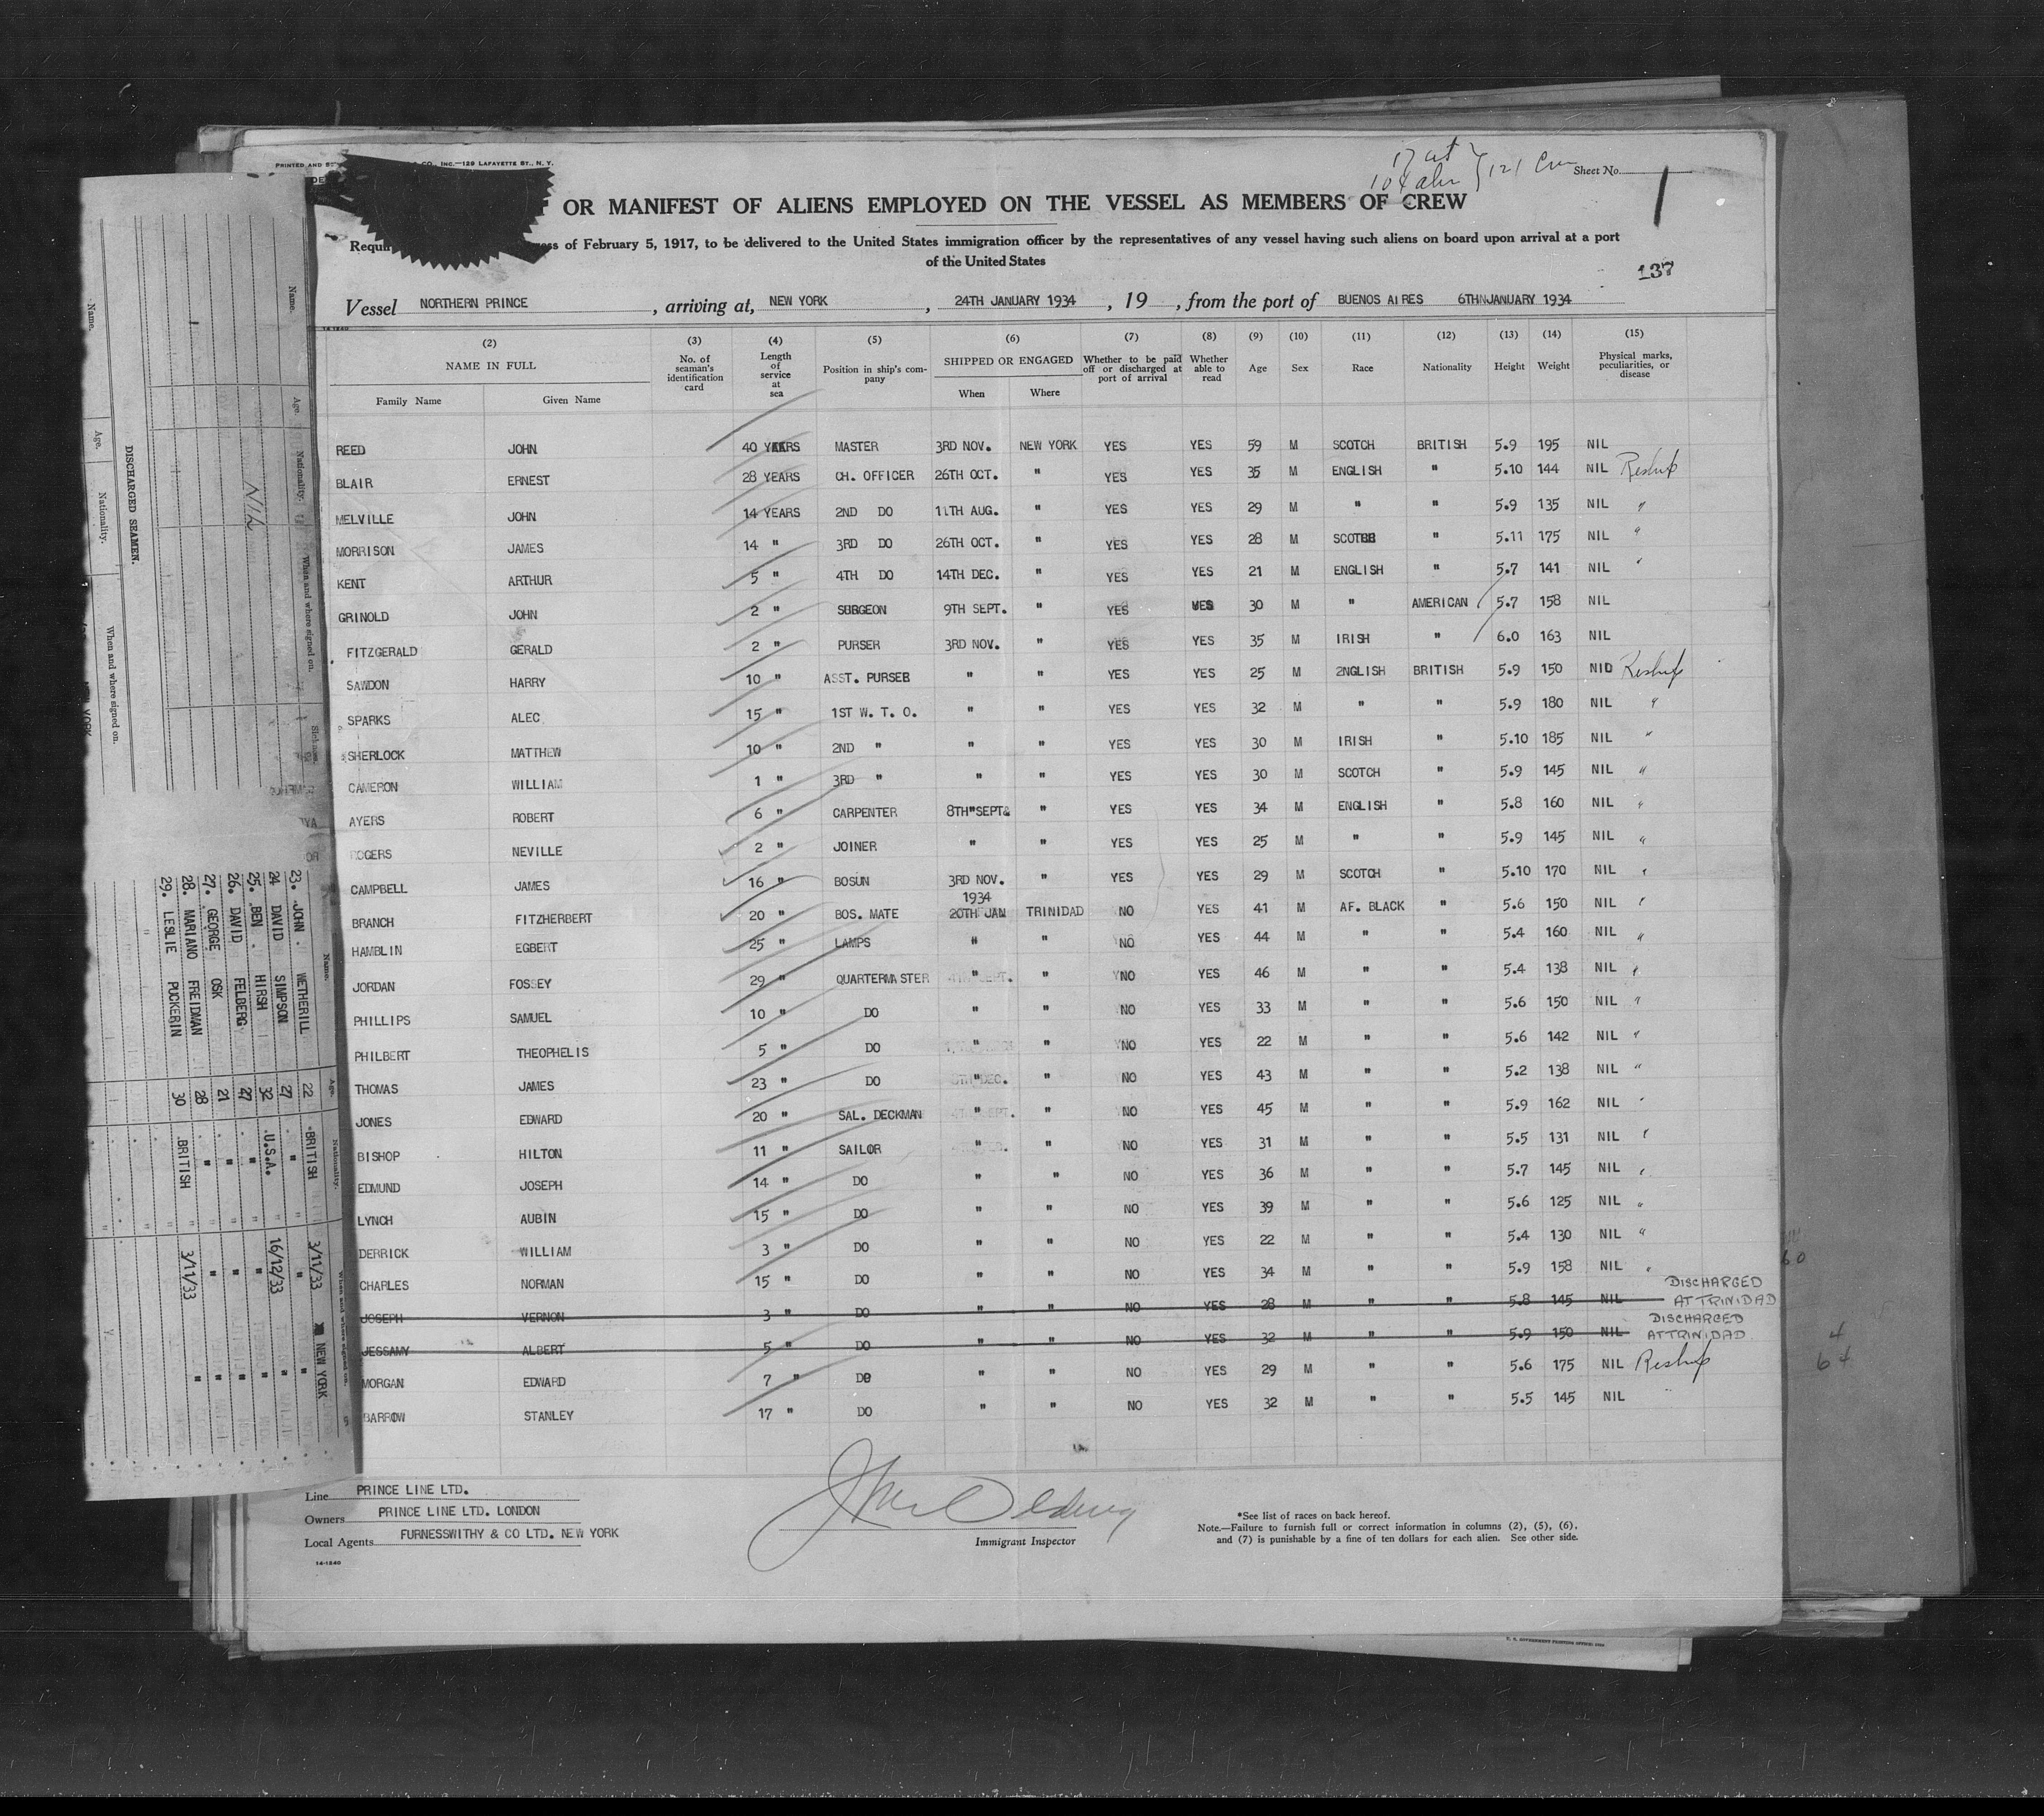 PRINTED AND
CO., INC.—129 LAFAYETTE ST., N. Y.
17 cit
104 alien } 121 Crew
Sheet No.
1
OR MANIFEST OF ALIENS EMPLOYED ON THE VESSEL AS MEMBERS OF CREW
Requi ess of February 5, 1917, to be delivered to the United States immigration officer by the representatives of any vessel having such aliens on board upon arrival at a port
of the United States
137
Vessel NORTHERN PRINCE , arriving at, NEW YORK , 24TH JANUARY 1934 , 19 , from the port of BUENOS AIRES 6THNJANUARY 1934
14-1240
(2) (3) (4) (5) (6) (7) (8) (9) (10) (11) (12) (13) (14) (15)
NAME IN FULL No. of seaman's identification card Length of service at sea Position in ship's company SHIPPED OR ENGAGED Whether to be paid off or discharged at port of arrival Whether able to read Age Sex Race Nationality Height Weight Physical marks, peculiarities, or disease
Family Name Given Name When Where
REED JOHN 40 YEARS MASTER 3RD NOV. NEW YORK YES YES 59 M SCOTCH BRITISH 5.9 195 NIL
BLAIR ERNEST 28 YEARS CH. OFFICER 26TH OCT. " YES YES 35 M ENGLISH " 5.10 144 NIL Reship
MELVILLE JOHN 14 YEARS 2ND DO 11TH AUG. " YES YES 29 M " " 5.9 135 NIL "
MORRISON JAMES 14 " 3RD DO 26TH OCT. " YES YES 28 M SCOTCH " 5.11 175 NIL "
KENT ARTHUR 5 " 4TH DO 14TH DEC. " YES YES 21 M ENGLISH " 5.7 141 NIL "
GRINOLD JOHN 2 " SURGEON 9TH SEPT. " YES YES 30 M " AMERICAN 5.7 158 NIL
FITZGERALD GERALD 2 " PURSER 3RD NOV. " YES YES 35 M IRISH " 6.0 163 NIL
SAWDON HARRY 10 " ASST. PURSER " " YES YES 25 M 2NGLISH BRITISH 5.9 150 NID Reship
SPARKS ALEC 15 " 1ST W. T. O. " " YES YES 32 M " " 5.9 180 NIL "
SHERLOCK MATTHEW 10 " 2ND " " " YES YES 30 M IRISH " 5.10 185 NIL "
CAMERON WILLIAM 1 " 3RD " " " YES YES 30 M SCOTCH " 5.9 145 NIL "
AYERS ROBERT 6 " CARPENTER 8TH"SEPT& " YES YES 34 M ENGLISH " 5.8 160 NIL "
ROGERS NEVILLE 2 " JOINER " " YES YES 25 M " " 5.9 145 NIL "
CAMPBELL JAMES 16 " BOSUN 3RD NOV. " YES YES 29 M SCOTCH " 5.10 170 NIL "
1934
BRANCH FITZHERBERT 20 " BOS. MATE 20TH JAN TRINIDAD NO YES 41 M AF. BLACK " 5.6 150 NIL "
HAMBLIN EGBERT 25 " LAMPS " " NO YES 44 M " " 5.4 160 NIL "
JORDAN FOSSEY 29 " QUARTERMASTER " NO YES 46 M " " 5.4 138 NIL "
PHILLIPS SAMUEL 10 " DO " " NO YES 33 M " " 5.6 150 NIL "
PHILBERT THEOPHELIS 5 " DO " " NO YES 22 M " " 5.6 142 NIL "
THOMAS JAMES 23 " DO " " NO YES 43 M " " 5.2 138 NIL "
JONES EDWARD 20 " SAL. DECKMAN " NO YES 45 M " " 5.9 162 NIL "
BISHOP HILTON 11 " SAILOR " " NO YES 31 M " " 5.5 131 NIL "
EDMUND JOSEPH 14 " DO " " NO YES 36 M " " 5.7 145 NIL "
LYNCH AUBIN 15 " DO " " NO YES 39 M " " 5.6 125 NIL "
DERRICK WILLIAM 3 " DO " " NO YES 22 M " " 5.4 130 NIL "
CHARLES NORMAN 15 " DO " " NO YES 34 M " " 5.9 158 NIL "
JOSEPH VERNON 3 " DO " " NO YES 28 M " " 5.8 145 NIL DISCHARGED AT TRINIDAD
JESSAMY ALBERT 5 " DO " " NO YES 32 M " " 5.9 150 NIL DISCHARGED AT TRINIDAD
MORGAN EDWARD 7 " DO " " NO YES 29 M " " 5.6 175 NIL Reship
BARROW STANLEY 17 " DO " " NO YES 32 M " " 5.5 145 NIL
Line PRINCE LINE LTD.
Owners PRINCE LINE LTD. LONDON
Local Agents FURNESSWITHY & CO LTD. NEW YORK
14-1240
Immigrant Inspector
*See list of races on back hereof.
Note.—Failure to furnish full or correct information in columns (2), (5), (6),
and (7) is punishable by a fine of ten dollars for each alien. See other side.
60
4
64
DISCHARGED SEAMEN.
Name. Age. Nationality. When and where signed on.
Name. Age. Nationality. When and where signed on.
NIL
Name. Age. Nationality. When and where signed on.
23. JOHN WETHERILL 22 BRITISH 3/11/33 NEW YORK
24 DAVID SIMPSON 27 " " "
25. BEN HIRSH 32 U.S.A. 16/12/33 "
26. DAVID FELBERG 27 " " "
27. GEORGE OSK 21 " " "
28. MARIANO FREIDMAN 28 " " "
29. LESLIE PUCKERIN 30 BRITISH 3/11/33 "